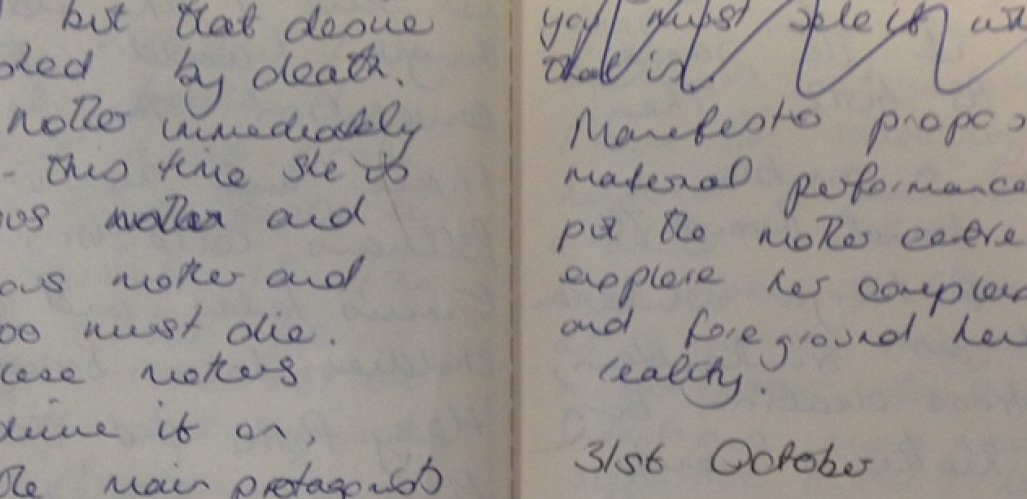 but that desire
by death.
mother immediately
- this time she is
mother and
mother and
must die.
mothers
it on,
main protagonists
you must
that is.
Manifesto
maternal performance
put the mother centre
explore her
and foreground her
reality.
31st October